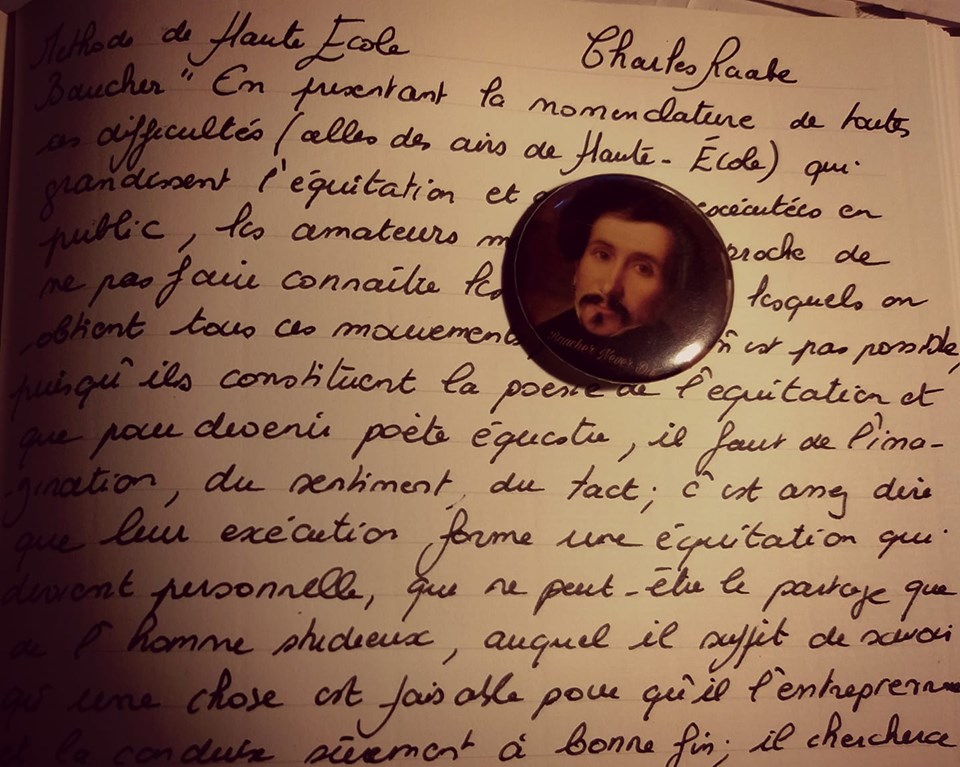 Méthode de Haute Ecole Charles Raabe
Baucher " En présentant la nomenclature de toutes
ces difficultés (alles des airs de Haute-École) qui
grandissent l'équitation et exécutées en
public, les amateurs
ne pas faire connaître les lesquels on
obtient tous ces mouvements, n'est pas possible,
puisqu'ils constituent la poésie de l'equitation et
que pour devenir poète équestre, il faut de l'ima-
-gination, du sentiment, du tact; c'est assez dire
que leur exécution forme une équitation qui
devient personnelle, que ne peut-être le partage que
de l'homme studieux, auquel il suffit de savoir
qu'une chose est faisable pour qu'il l'entreprenne
et la conduise sûrement à bonne fin; il cherchera
Baucher